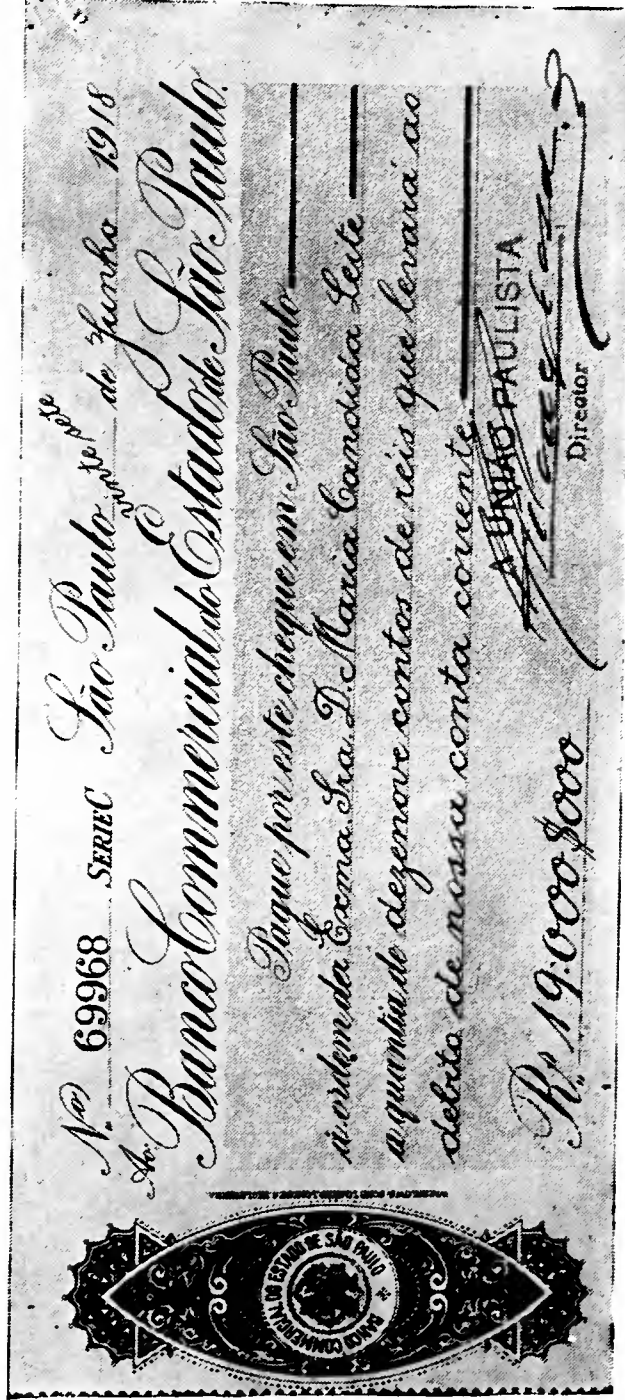 No. 69968 SERIE C São Paulo, vinte sete de Junho 1918
Ao Banco Commercial do Estado de São Paulo.
Pague por este cheque em São Paulo
á ordem da Exma. Sra. D. Maria Candida Leite
a quantia de dezenove contos de réis que levará ao
debito de nossa conta corrente.
A UNIÃO PAULISTA
Rs. 19.000$000
Director
BANCO COMMERCIAL DO ESTADO DE SÃO PAULO